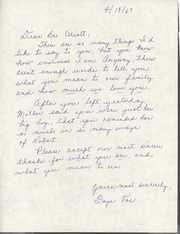 4/19/69
Dear Bro. Elliott,
There are so many things I'd
like to say to you, but you know
how emotional I am. Anyway there
aren't enough words to tell you
what you mean to our family
and how much we love you.
After you left yesterday
Mother said you were just her
big boy, that you reminded her
so much in so many ways
of Robert.
Please accept our most sincere
thanks for what you are and
what you mean to us.
Yours most sincerely,
Gaye